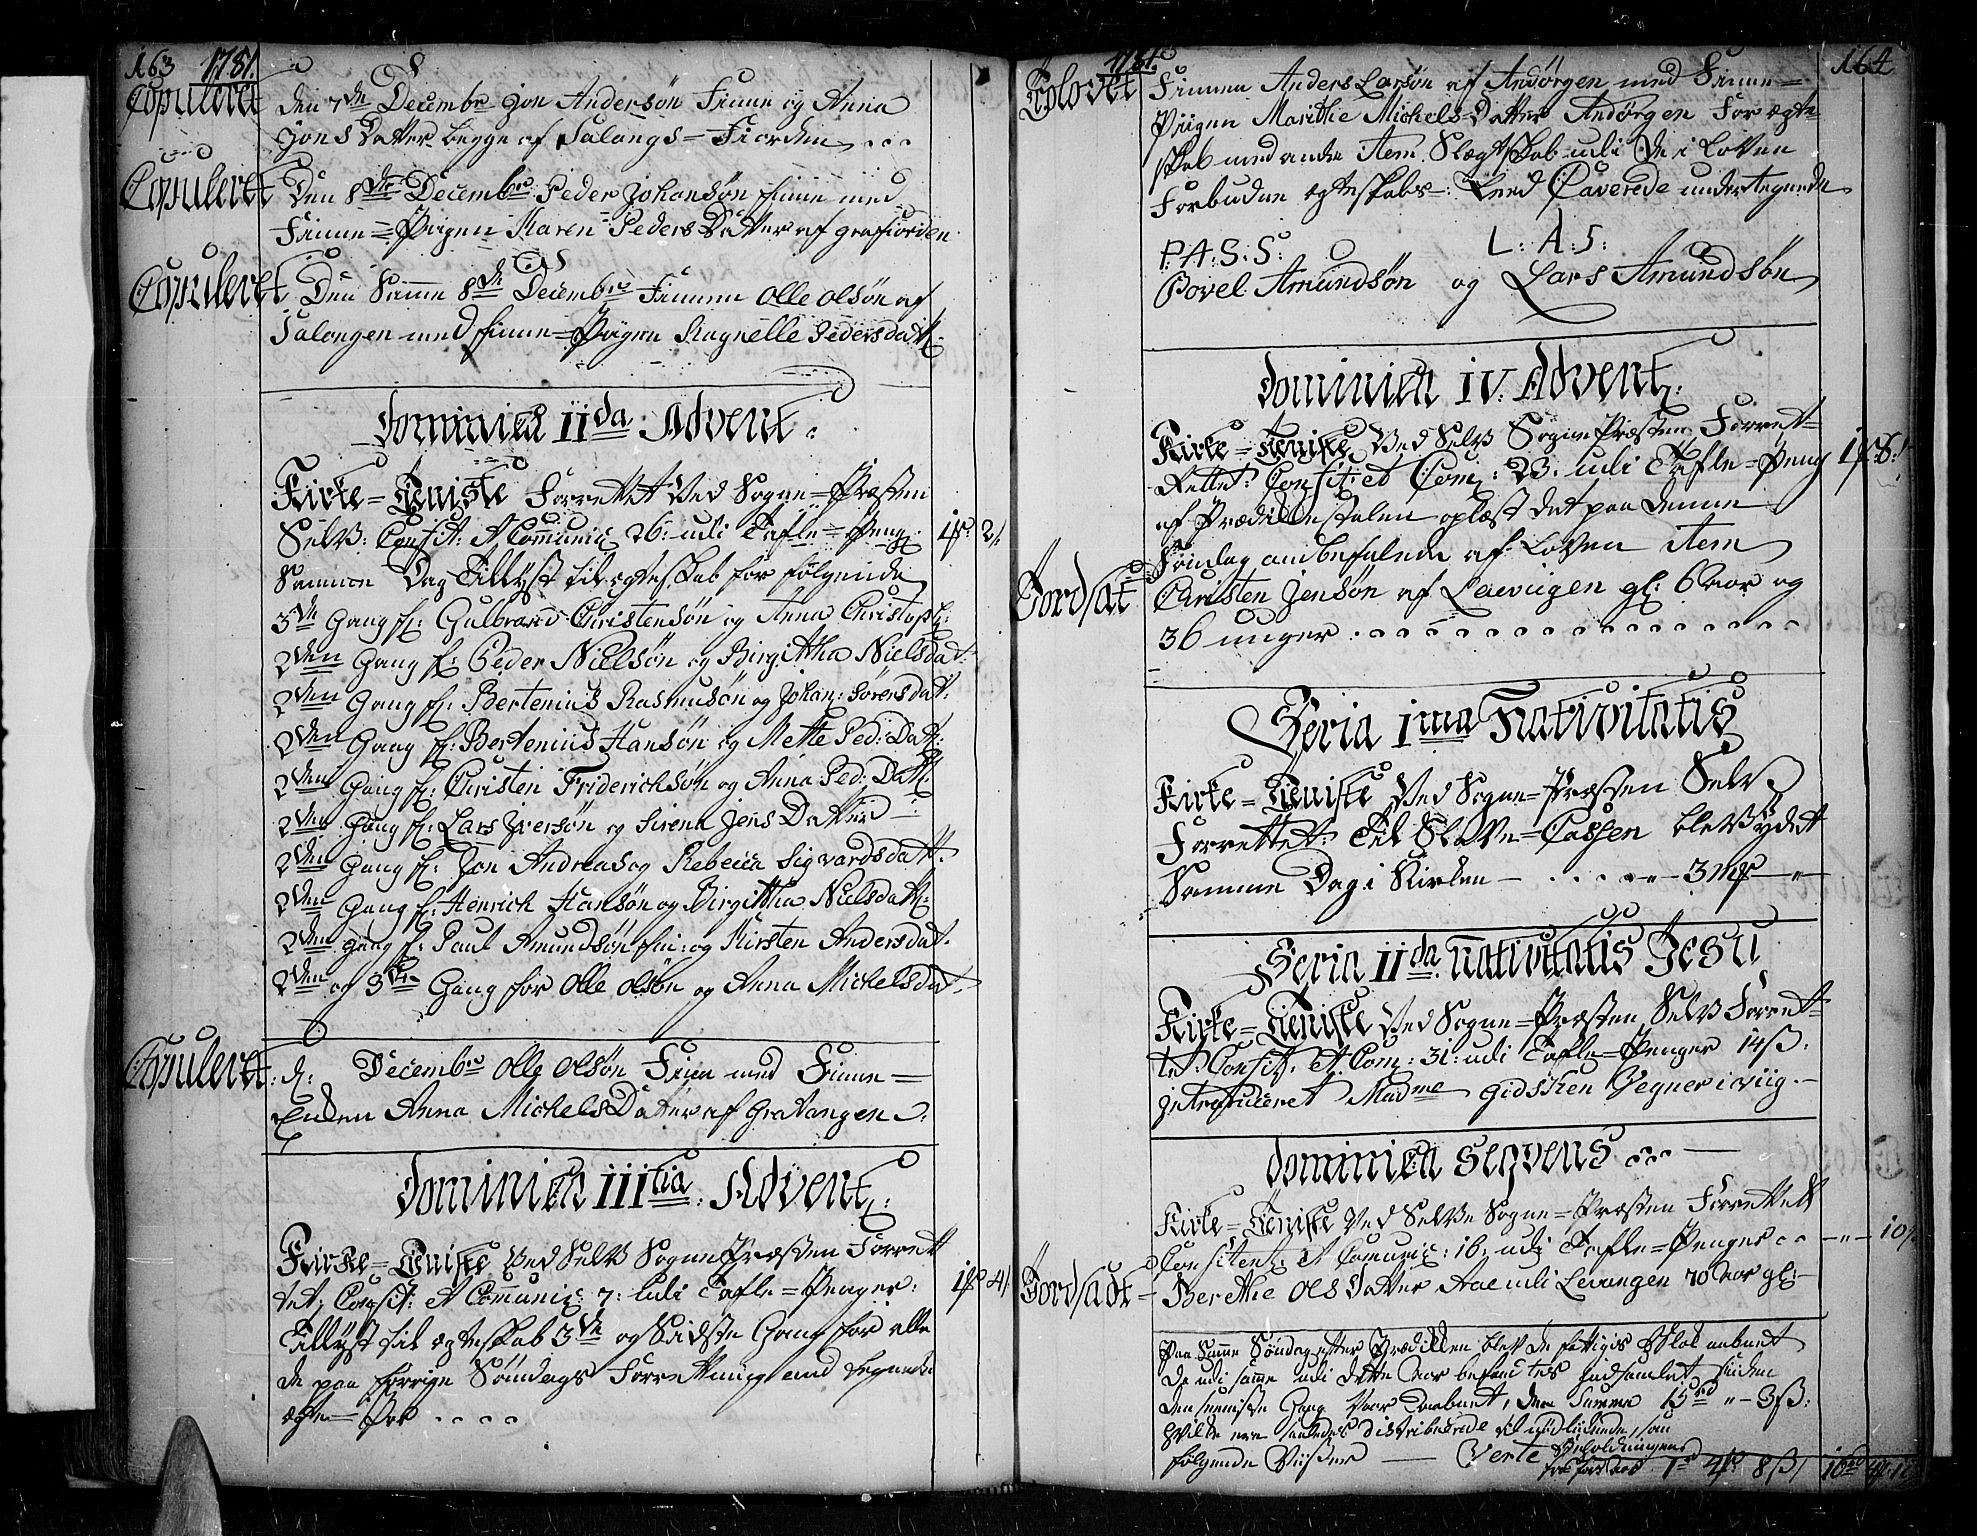 163 1781.
Copuleret den 7de Decembr Jon Andersøn Finne og Anna
Jons Datter begge af Salangs-Fiorden
Copuleret Den 8de Decembr Peder Johansøn finne med
Finne-Piigen Karen Peders Datter af Grafiorden
Copuleret Den Samme 8de Decembr Finnen Olle Olsøn af
Salangen med finne-Piigen Ragnelle Pedersdatt:
Dominica IIda Advent:
Kirke-Tieniste Forrettet Ved Sogne-Præsten
Selv: Consit: et Comunic: 26: udi Tafle-Peng: 1 2
Samme Dag Tillyst til egteskab for følgende
3de Gang f: Gulbrand Christensøn og Anna Christophs:
2den Gang f: Peder Nielsøn og Birgittha Nielsdat:
2den Gang f: Bertenius Rasmusøn og Johan: Sørensdat:
2den Gang f: Bertenius Hansøn og Mette Ped: Datt:
2den Gang f: Christen Friderichsøn og Anna Ped: Datt:
2den Gang f: Lars Iversøn og Sirena Jens Datter
2den Gang f: Jon Andreas og Rebecca Sigvardsdatt:
2den Gang f: Henrich Hansøn og Birgittha Nielsdatt:
2den gang f: Paul Amundsøn fin: og Kirsten Andersdat:
2den og 3die Gang for Olle Olsøn og Anna Michelsdat:
Copuleret d: Decembr Olle Olsøn Finn med Finne-
Enken Anna Michels Datter af Gratangen
Dominica IIItia Advent:
Kirke-Tieniste Ved Selv Sogne Præsten Forret
tet: Consit: et Comunic: 7: udi Tafle-Penger: 1 4
Tillyst til egteskab 3de og Sidste Gang for alle
de paa forrige Søndags Forretning
egte-Par
1781. 164
Trolovet Finnen Anders Larsøn af Andørgen med Finne-
Piigen Marithe Michels-Datter Andørgen For egte-
skab med anden item Slegtskab udi De i Loven
Forbudne egteskabs-Leed Caverede undertegnede
P: A: S: S: L: A: S:
Povel Amundsøn og Lars Amundsøn
Dominica IV. Advent:
Kirke-Tieniste Ved Selv Sogne Præsten Forret-
Rettet: Consit: et Com: 23: udi Tafle-Peng 1 8
af Prædikestolen oplæst det paa denne
Søndag anbefalede af Loven item
Jordsat Christen Jensøn af Lavangen gl: 6 aar og
36 unger
Feria Ima Nativitatis
Kirke-Tieniste Ved Sogne-Præsten Selv
Forrettet: Til Slave-Cassen blev ydet
Samme Dag i Kirken 3
Feria IIda Nativitatis Jesu
Kirke-Tieniste Ved Sogne-Præsten Selv Forret-
tet: Consit: et Com: 31: udi Tafle-Penger 14ß:
Introduceret Madme Gidsken Wegner i Viig.
Dominica Seqvens
Kirke-Tieniste Ved Selve Sogne-Præsten Forrettet
Consitent: et Comunic: 16: udi Tafle-Penger 10
Jordsadt Berthe Ols Datter udi Levangen 70 Aar gl:
Paa Samme Søndag efter Prædikken blev De fattiges Blok aabnet
De udi samme udi Dette Aar befandtes indsamlet siden
den seeniste Gang Var aabnet, Den Summa 15rd 3ß:
hvilke ere saaledes distribuerede til nødlidende, som
følgende Viiser Verte
1rd 4 8ß